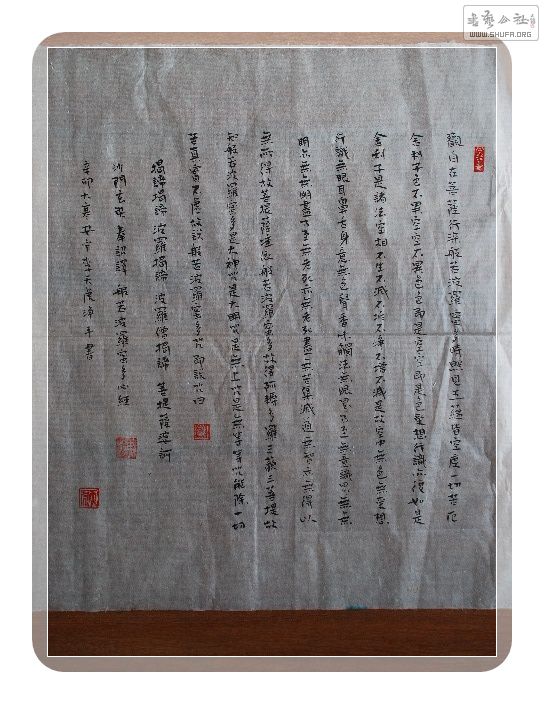 觀自在菩薩行深般若波羅蜜多時照見五蘊皆空度一切苦厄
舍利子色不異空空不異色色即是空空即是色受想行識亦復如是
舍利子是諸法空相不生不滅不垢不淨不增不減是故空中無色無受想
行識無眼耳鼻舌身意無色聲香味觸法無眼界乃至無意識界無無
明亦無無明盡乃至無老死亦無老死盡無苦集滅道無智亦無得以
無所得故菩提薩埵依般若波羅蜜多故得阿耨多羅三藐三菩提故
知般若波羅蜜多是大神咒是大明咒是無上咒是無等等咒能除一切
苦真實不虛故說般若波羅蜜多咒即說咒曰
揭諦揭諦 波羅揭諦 波羅僧揭諦 菩提薩婆訶
沙門玄奘奉詔譯 般若波羅蜜多心經
辛卯大暑 李天 淨手書
書藝公社
WWW.SHUFA.ORG